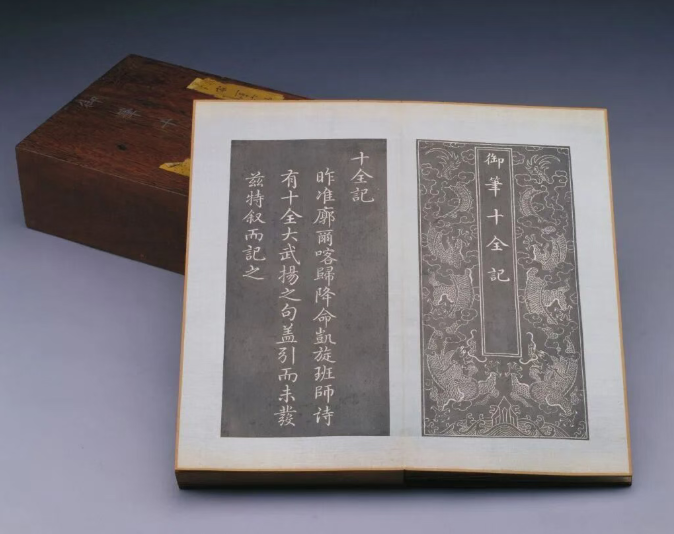 御筆十全記
十全記
昨准廓爾喀歸降命凱旋班師詩
有十全大武揚之句盖引而未發
兹特叙而記之